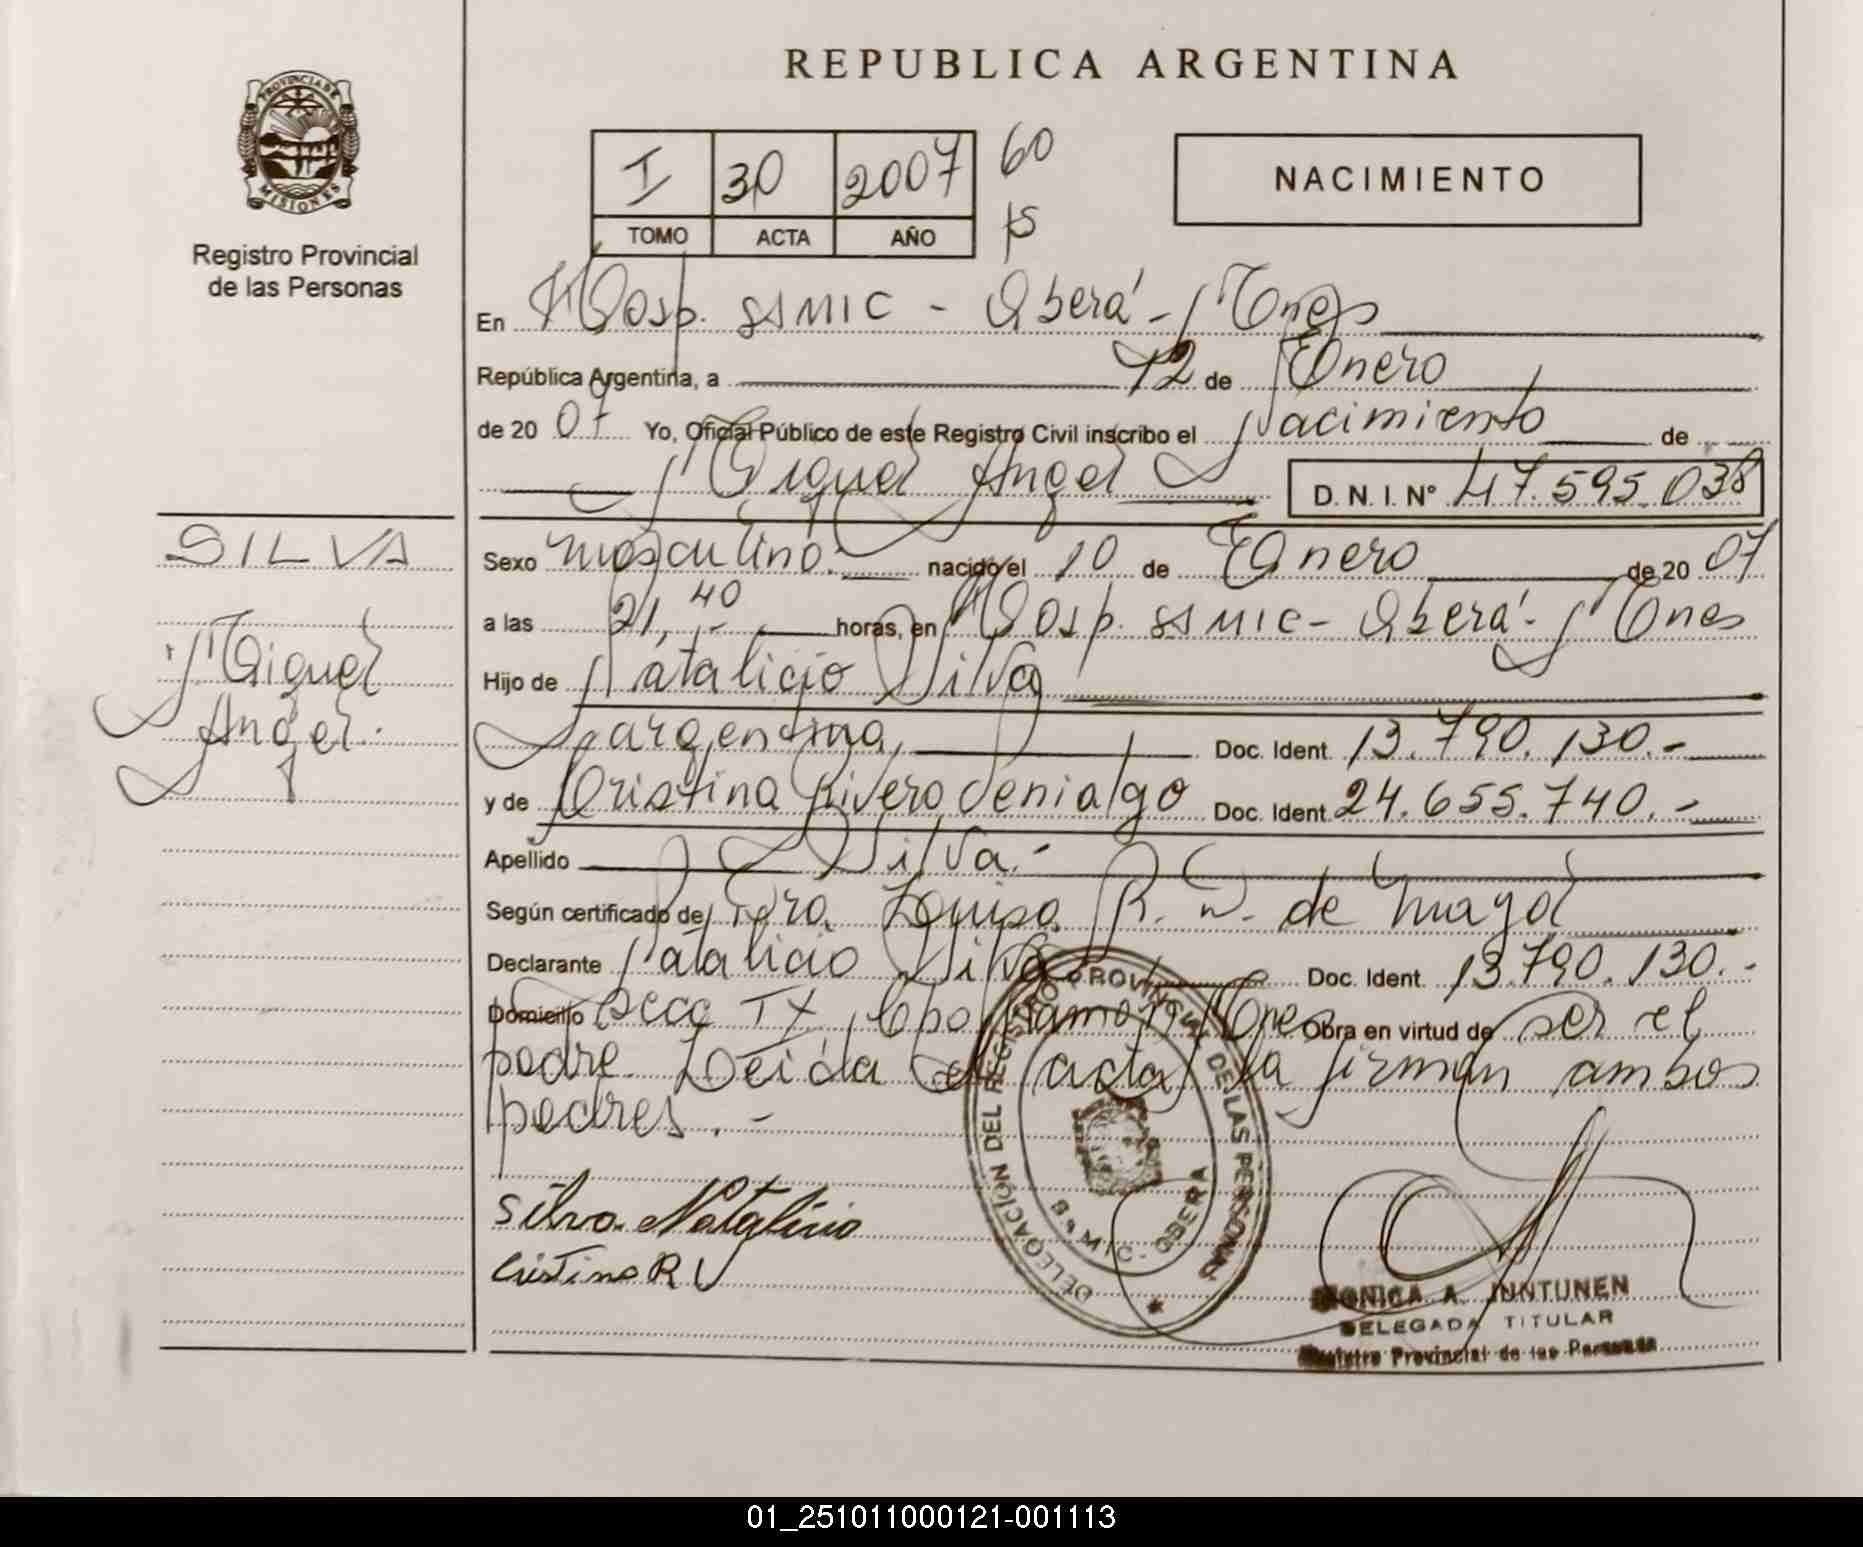 REPUBLICA ARGENTINA
PROVINCIA DE MISIONES
Registro Provincial
de las Personas
I 30 2007 60
TOMO ACTA AÑO
NACIMIENTO
En Hosp. SSMIC - Oberá - Mnes
República Argentina, a 12 de Enero
de 20 07 Yo, Oficial Público de este Registro Civil inscribo el Nacimiento de
Miguel Angel D. N. I. Nº 47.595.038
SILVA
Miguel
Angel.
Sexo masculino. nacido el 10 de Enero de 20 07
a las 21,40 horas, en Hosp. SSMIC - Oberá - Mnes
Hijo de Natalicio Silva
argentina, Doc. Ident. 13.790.130.-
y de Cristina Rivero Venialgo Doc. Ident. 24.655.740.-
Apellido Silva.-
Según certificado de Dra. Luisa R. W. de Mayol
Declarante Natalicio Silva Doc. Ident. 13.790.130.-
Domicilio Secc IX, Cpo Ramon Mnes Obra en virtud de ser el
padre. Leida el acta, la firman ambos
padres.-
Silva Natalicio
Cristina R V
DELEGACIÓN DEL REGISTRO PROVINCIAL DE LAS PERSONAS
SSMIC - OBERA
MONICA A. JUNTUNEN
DELEGADA TITULAR
Registro Provincial de las Personas
01_251011000121-001113